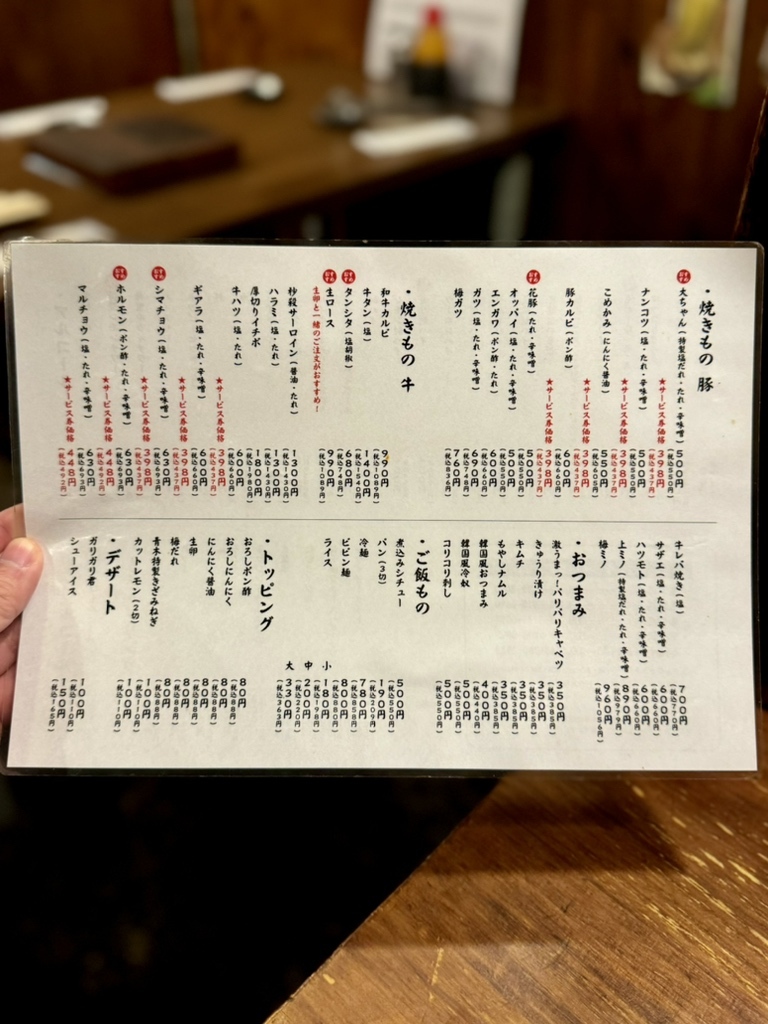 ・焼きもの 豚
おすすめ 大ちゃん(特製塩だれ・たれ・辛味噌) 500円 (税込550円)
★サービス券価格 398円 (税込437円)
ナンコツ(塩・たれ・辛味噌) 500円 (税込550円)
★サービス券価格 398円 (税込437円)
こめかみ(にんにく醤油) 550円 (税込605円)
★サービス券価格 398円 (税込437円)
豚カルビ(ポン酢) 600円 (税込660円)
★サービス券価格 398円 (税込437円)
おすすめ 花豚(たれ・辛味噌) 600円 (税込660円)
オッパイ(塩・たれ・辛味噌) 500円 (税込550円)
エンガワ(ポン酢・たれ) 600円 (税込660円)
ガツ(塩・たれ・辛味噌) 690円 (税込759円)
梅ガツ 760円 (税込836円)
・焼きもの 牛
和牛カルビ 990円 (税込1089円)
牛タン(塩) 1400円 (税込1540円)
おすすめ タンシタ(塩胡椒) 680円 (税込748円)
おすすめ 生ロース 990円 (税込1089円)
生卵と一緒のご注文がおすすめ!
秒殺サーロイン(醤油・たれ) 1300円 (税込1430円)
ハラミ(塩・たれ) 1300円 (税込1430円)
厚切りイチボ 1800円 (税込1980円)
牛ハツ(塩・たれ) 600円 (税込660円)
★サービス券価格 398円 (税込437円)
ギアラ(塩・たれ・辛味噌) 600円 (税込660円)
★サービス券価格 398円 (税込437円)
おすすめ シマチョウ(塩・たれ・辛味噌) 630円 (税込693円)
★サービス券価格 398円 (税込437円)
おすすめ ホルモン(ポン酢・たれ・辛味噌) 630円 (税込693円)
★サービス券価格 448円 (税込492円)
マルチョウ(塩・たれ・辛味噌) 630円 (税込693円)
★サービス券価格 448円 (税込492円)
牛レバ焼き(塩) 700円 (税込770円)
サザエ(塩・たれ・辛味噌) 600円 (税込660円)
ハツモト(塩・たれ・辛味噌) 600円 (税込660円)
上ミノ(特製塩だれ・たれ・辛味噌) 890円 (税込979円)
梅ミノ 960円 (税込1056円)
・おつまみ
激うまっ!バリバリキャベツ 350円 (税込385円)
きゅうり漬け 350円 (税込385円)
キムチ 350円 (税込385円)
もやしナムル 350円 (税込385円)
韓国風おつまみ 400円 (税込440円)
韓国風冷奴 500円 (税込550円)
コリコリ刺し 500円 (税込550円)
・ご飯もの
煮込みシチュー 500円 (税込550円)
パン(3切) 190円 (税込209円)
冷麺 780円 (税込858円)
ビビン麺 800円 (税込880円)
ライス 小 180円 (税込198円)
中 200円 (税込220円)
大 330円 (税込363円)
・トッピング
おろしポン酢 80円 (税込88円)
おろしにんにく 80円 (税込88円)
にんにく醤油 80円 (税込88円)
生卵 80円 (税込88円)
梅だれ 80円 (税込88円)
青木特製きざみねぎ 100円 (税込110円)
カットレモン(2切) 100円 (税込110円)
・デザート
ガリガリ君 100円 (税込110円)
シューアイス 150円 (税込165円)